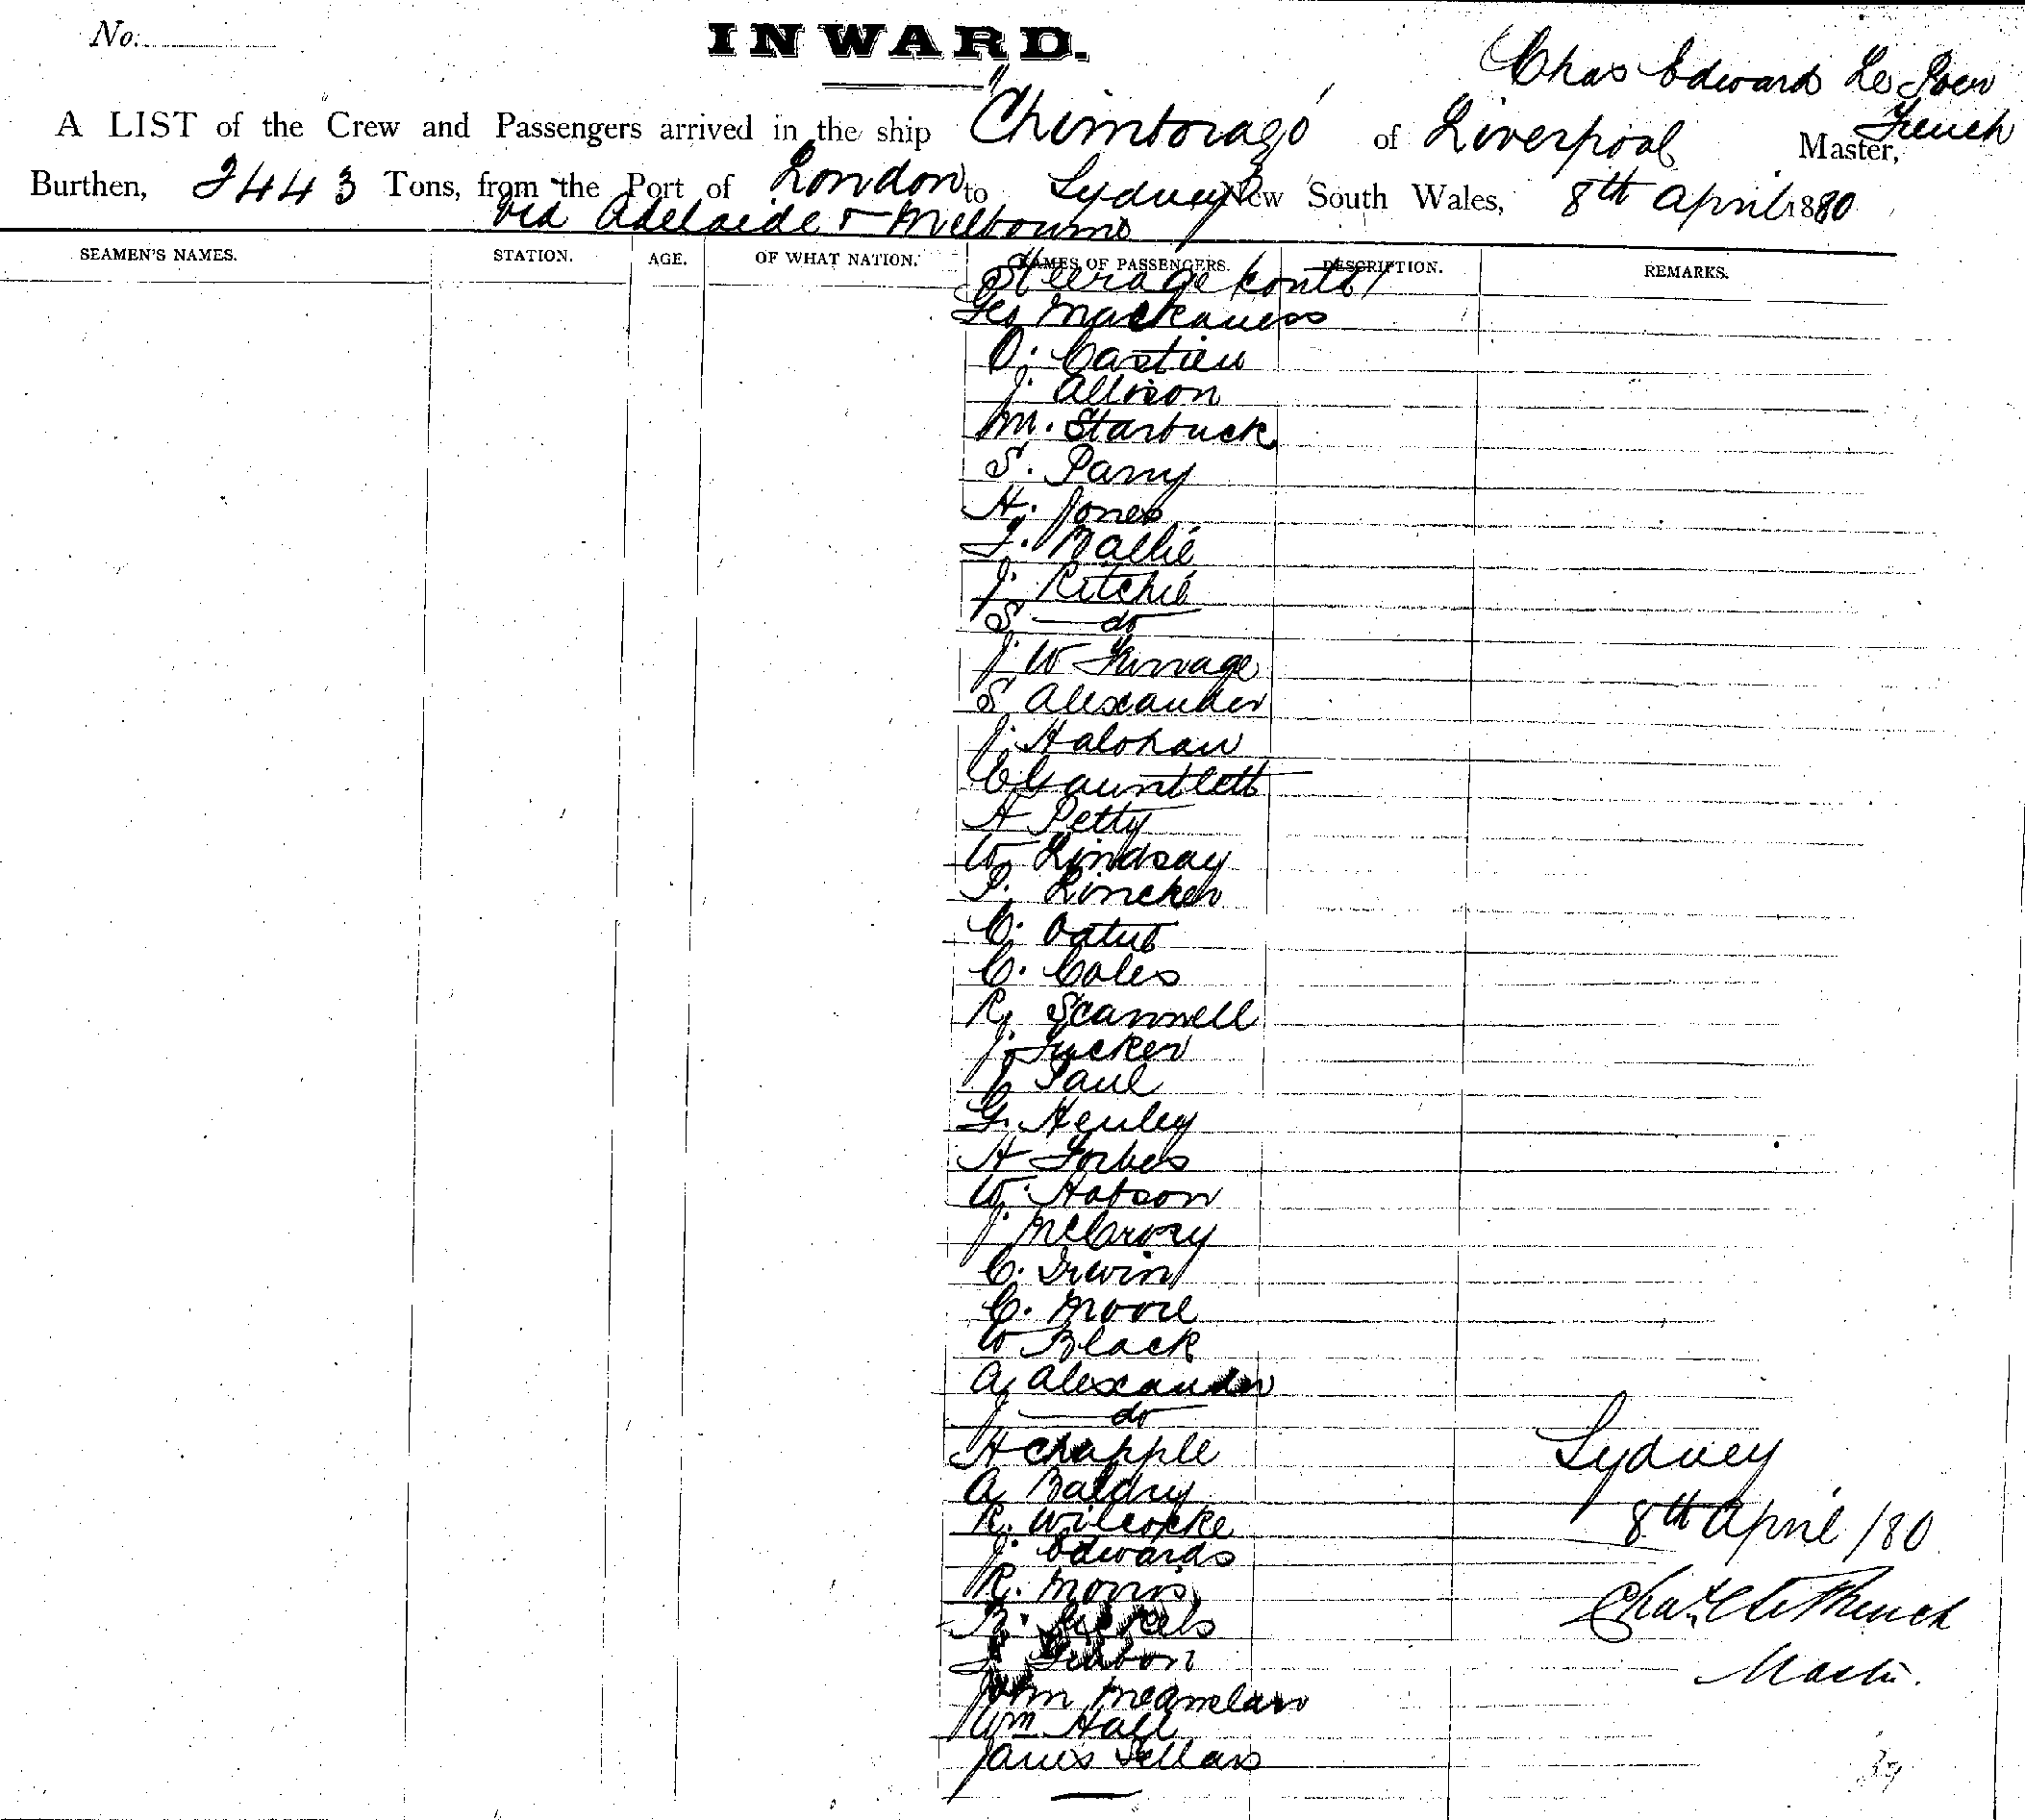 No:
INWARD.
Chas Edward Le Poer
French
A LIST of the Crew and Passengers arrived in the ship "Chimborazo" of Liverpool Master,
Burthen, 2443 Tons, from the Port of London to Sydney New South Wales, 8th April 1880
via Adelaide & Melbourne
SEAMEN'S NAMES. STATION. AGE. OF WHAT NATION. NAMES OF PASSENGERS. DESCRIPTION. REMARKS.
Steerage contd
Geo Mackaness
O. Castieu
J. Allison
M. Starbuck
S. Parry
H. Jones
T. Ballie
J. Ritchie
S — do
J W Furrage
S Alexander
J. Halohan
C Gauntlett
H Petty
W Lindsay
P. Lincker
C.
C. Coles
R. Scannell
J. Tucker
J Paul
G. Henley
H Forbes
W. Hobson
J. McCrory
C. Irwin
C. Moore
W Black
A Alexander
J — do
H Chapple
A Baldry
R. Wilcocke
J. Edwards
R. Morris
B.
T
John
Wm Hall
James Sellars
Sydney
8th April /80
Chas E Le P French
Master.
39